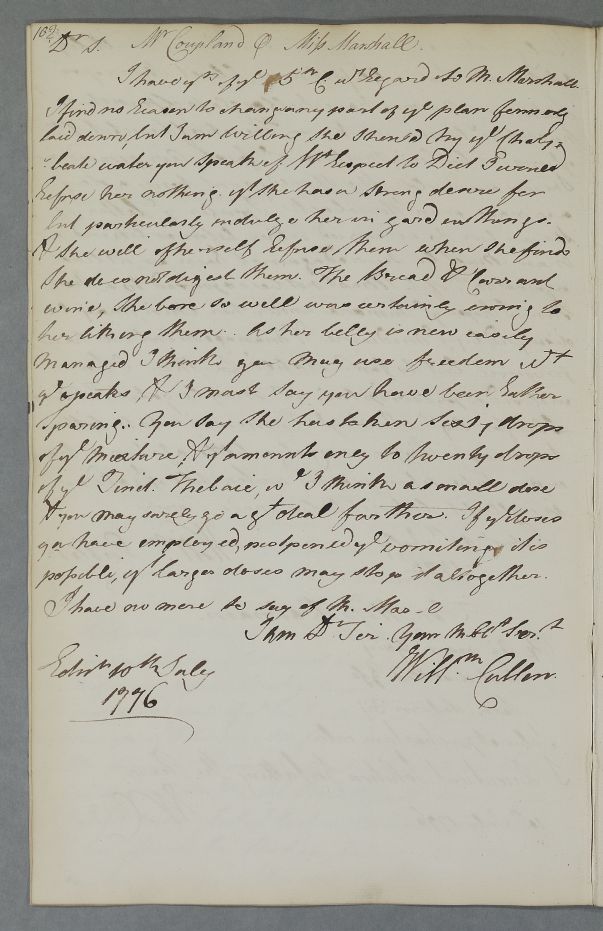 182
Dr S. Mr Coupland C. Miss Marshall.
I have yrs of ye 5th C. wt Regard to M. Marshall
I find no Reason to change any part of ye plan formerly
laid down, but I am willing she should try ye Chaly,,
,,beate water you speak of Wt Respect to Diet I would
Refuse her nothing yt she has a strong desire for
but particularly indulge her in garden things.
& she will of herself Refuse them when she finds
she does not digest them. The Bread & Corrant
wine, she bore so well was certainly owing to
her liking them. As her belly is now easily
managed I think you may use freedom wt
ye opeates, & I must say you have been Rather
sparing. You say she has taken Sixty drops
of ye Mixture, & yt amounts only to twenty drops
of ye Tinct. Thebaic, wc I think a small dose
& you may surely go a gt deal farther. If ye doses
you have employed, postponed ye vomiting, it is
possible, yt larger doses may stop it altogether.
I have no more to say of M. Mac-l
I am Dr Sir. Your mo bl Servt
Willm Cullen.
Edinr 10th July
1776